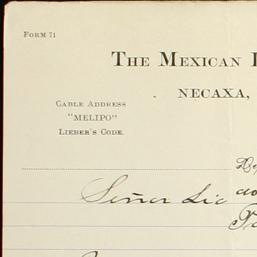 FORM 71
THE MEXICAN
NECAXA,
CABLE ADDRESS
"MELIPO"
LIEBER'S CODE.
Señor Lic